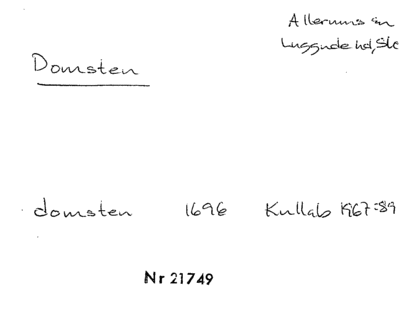 Allerums sn
Luggude hd, Sk
Domsten
domsten 1696 Kullab 1967:89
Nr 21749